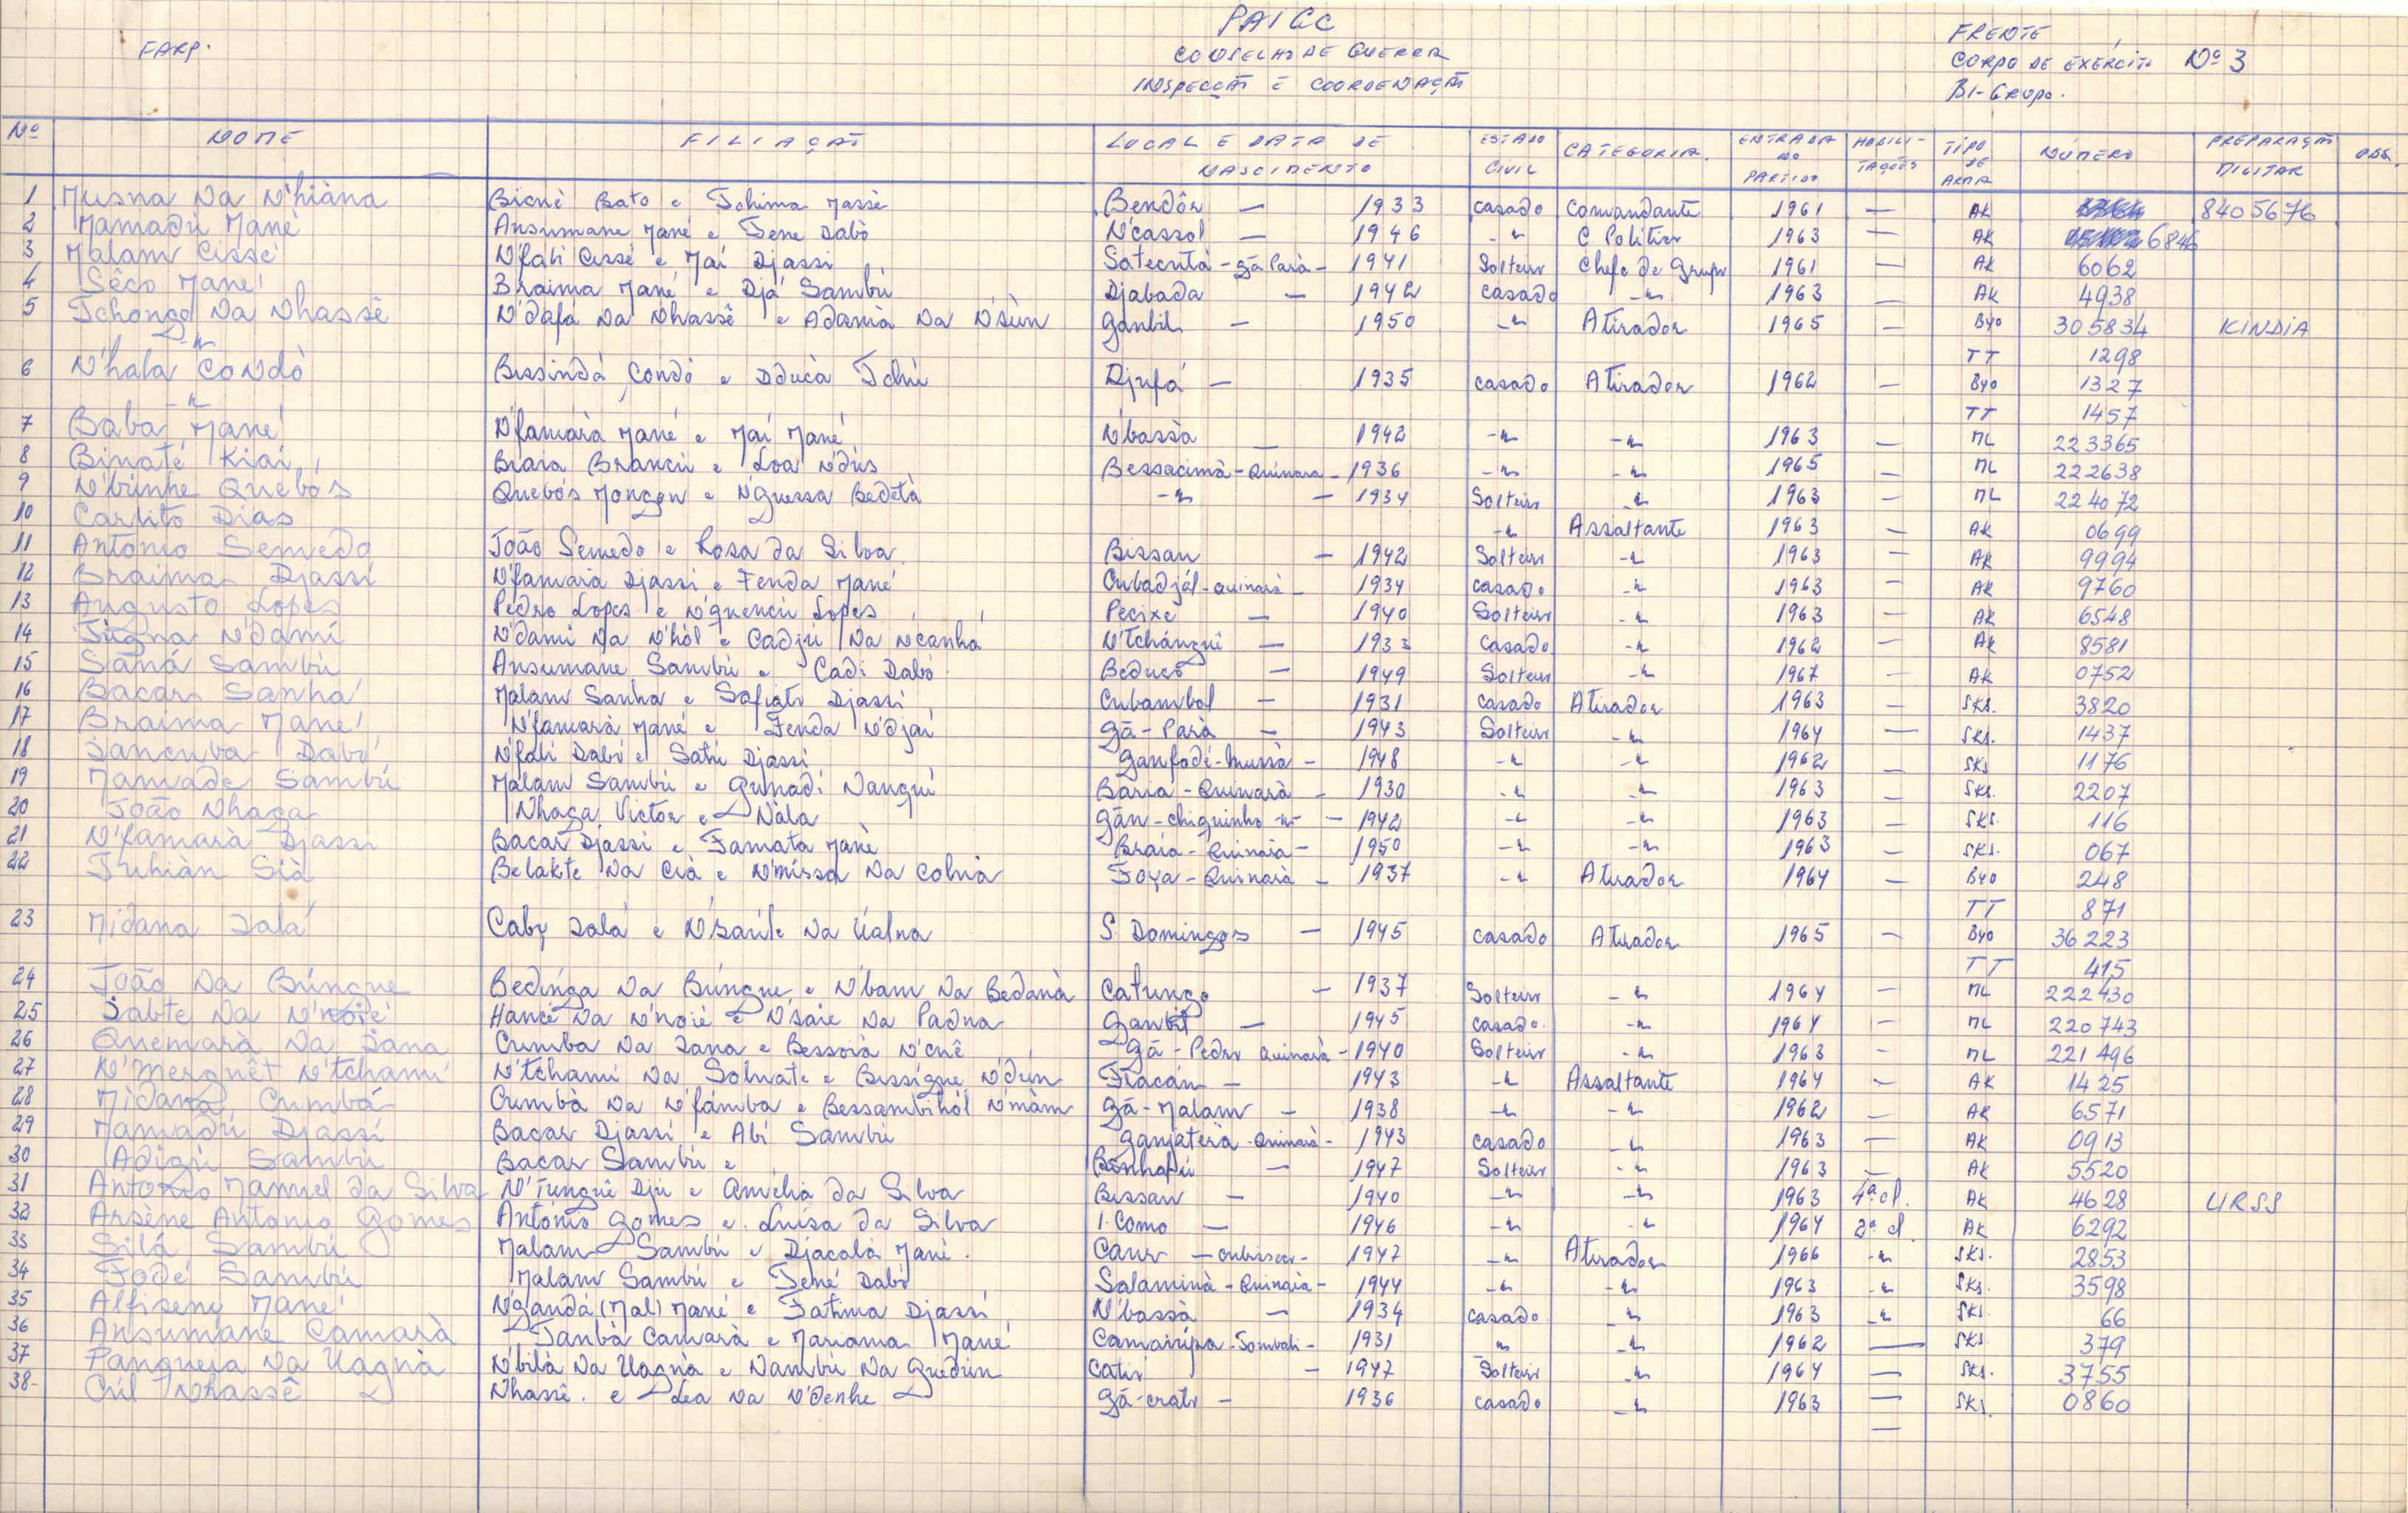 FARP.
PAIGC
CONSELHO DE GUERRA
INSPECÇÃO E COORDENAÇÃO
FRENTE
CORPO DE EXÉRCITO Nº 3
BI-GRUPO.
Nº NOME FILIAÇÃO LOCAL E DATA DE NASCIMENTO ESTADO CIVIL CATEGORIA. ENTRADA NO PARTIDO HABILITAÇÕES TIPO DE ARMA NÚMERO PREPARAÇÃO MILITAR OBS.
1 Musna Na N'hiàna Bicnè Bato e Tchima Massè Bendôr — 1933 casado Comandante 1961 — AK 8405676
2 Mamadú Mané Ansumane Mané e Fene Dabò N'cassol — 1946 -"- C. Politico 1963 — AK 6846
3 Malam Cissé N'fali Cissé e Mai Djassi Satecutà - Gã Parà - 1941 Solteiro Chefe de Grupo 1961 — AK 6062
4 Sêco Mané Braima Mané e Djá Sambú Djabada — 1942 casado -"- 1963 — AK 4938
5 Tchongo Na Nhassê N'dafá Na Nhassê e Adamà Na N'sùn Ganbil — 1950 -"- Atirador 1965 — B40 305834 KINDIA
-"- TT 1298
6 N'hala Condò Bissindá Condó e Dducà Tchú Djufá — 1935 casado Atirador 1962 — B40 1327
-"- TT 1457
7 Baba Mané N'famarà Mané e Mai Mané N'bassà — 1942 -"- -"- 1963 — ML 223365
8 Binaté Kiai Biaia Brancú e Loa N'dús Bessacimà - Quinara - 1936 -"- -"- 1965 — ML 222638
9 N'brinhe Quebós Quebós Mongon e N'guessa Bedetà -"- — 1934 Solteiro -"- 1963 — ML 224072
10 Carlito Dias -"- Assaltante 1963 — AK 0699
11 Antonio Semedo João Semedo e Rosa da Silva Bissau — 1942 Solteiro -"- 1963 — AK 9994
12 Braima Djassi N'famarà Djassi e Fenda Mané Cubadjál - Quinarà - 1934 casado -"- 1963 — AK 9760
13 Augusto Lopes Pedro Lopes e N'quenciu Lopes Pecixe — 1940 Solteiro -"- 1963 — AK 6548
14 Tùgna N'dami N'dami Na N'hòl e Cadjú Na Ncanha N'Tchánguê — 1933 casado -"- 1962 — AK 8581
15 Saná Sambú Ansumane Sambú e Cadi Dabó Beducó — 1949 Solteiro -"- 1967 — AK 0752
16 Bacar Sanhá Malam Sanha e Safiato Djassi Cubambol — 1931 casado Atirador 1963 — SKS. 3820
17 Braima Mané N'famarà Mané e Fenda N'djai Gã - Parà — 1943 Solteiro -"- 1964 — SKS. 1437
18 Sancuba Dabó N'fali Dabó e Satú Djassi Ganfodé-Mussà - 1948 -"- -"- 1962 — SKS 1176
19 Mamade Sambú Malam Sambú e Gunadi Nanqui Baria - Quinarà - 1930 -"- -"- 1963 — SKS. 2207
20 João Nhaga Nhaga Victor e Nàla Gãn-chiquinho -"- — 1942 -"- -"- 1963 — SKS. 116
21 N'famarà Djassi Bacar Djassi e Famata Mané Braia - Quinaia - 1950 -"- -"- 1963 — SKS. 067
22 Tuhiàn Sià Belakte Na Cià e N'missa Na Colnia Foya - Quinarà - 1937 -"- Atirador 1964 — B40 248
TT 871
23 Midana Dalá Caby Dalá e N'saúle Na Ualna S. Domingos — 1945 casado Atirador 1965 — B40 36223
TT 415
24 João Na Búngue Bedinga Na Búngue e N'bam Na Bedanà Catungo — 1937 Solteiro -"- 1964 — ML 222430
25 Sabte Na N'noié Hancé Na N'noié e N'saie Na Padna Ganbil — 1945 casado. -"- 1964 — ML 220743
26 Quemarà Na Dana Cumba Na Dana e Bessorà N'cnê Gã - Pedro Quinarà - 1940 Solteiro -"- 1963 — ML 221496
27 N'Merquêt N'tchamú N'tchamú Na Solnate e Bissigue N'dún Fracán — 1943 -"- Assaltante 1964 — AK 1425
28 Midana Cumbá Cumbà Na N'fámba e Bessambihól N'màm Gã - Malam — 1938 -"- -"- 1962 — AK 6571
29 Mamadú Djassi Bacar Djassi e Abi Sambú Ganjaterà - Quinarà - 1943 casado -"- 1963 — AK 0913
30 Adigú Sambú Bacar Sambú e Bonhapú — 1947 Solteiro -"- 1963 — AK 5520
31 Antonio Manuel da Silva N'Tunguê Djú e Amélia da Silva Bissau — 1940 -"- -"- 1963 4ª cl. AK 4628 URSS
32 Arsène Antonio Gomes António Gomes e Luisa da Silva I. Como — 1946 -"- -"- 1964 2ª cl. AK 6292
33 Silá Sambú Malam Sambú e Djacolà Mané. Caur — Cubisseco - 1947 -"- Atirador 1966 -"- SKS. 2853
34 Fodé Sambú Malam Sambú e Fené Dabó Salaminà - Quinaià - 1944 -"- -"- 1963 -"- SKS. 3598
35 Alfiseny Mané N'gandá (Mal) Mané e Fatima Djassi N'bassà — 1934 casado -"- 1963 -"- SKS. 66
36 Ansumane Camarà Tanbà Camarà e Mariama Mané Camairípa - Tombali - 1931 " -"- 1962 — SKS. 379
37 Pangueia Na Uagnà N'bilà Na Uagnà e Nambú Na Quedún Catió — 1947 Solteiro -"- 1964 — SKS. 3755
38- Cúl Nhassê Nhassê. e Léa Na N'denhe Gã-crato — 1936 casado -"- 1963 — SKS. 0860
—